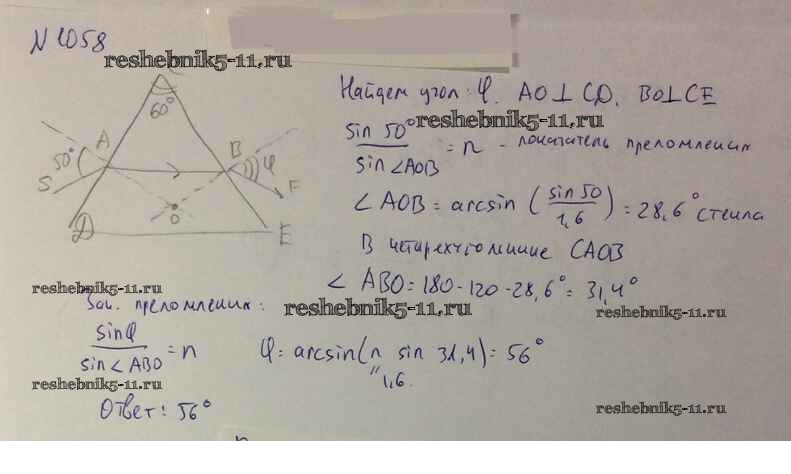 N 1058
reshebnik5-11.ru
C
60°
A
B
50°
φ
S
F
O
D
E
Найдем угол: φ. AO⊥CD, BO⊥CE
reshebnik5-11.ru
sin 50° / sin∠AOB = n - показатель преломления
∠AOB = arcsin (sin 50 / 1,6) = 28,6° стекла
В четырехугольнике CAOB
∠ ABO = 180 - 120 - 28,6° = 31,4°
reshebnik5-11.ru
Зак. преломления:
reshebnik5-11.ru
reshebnik5-11.ru
sinφ / sin∠ABO = n
φ = arcsin(n sin 31,4) = 56°
" 1,6.
reshebnik5-11.ru
Ответ: 56°
reshebnik5-11.ru